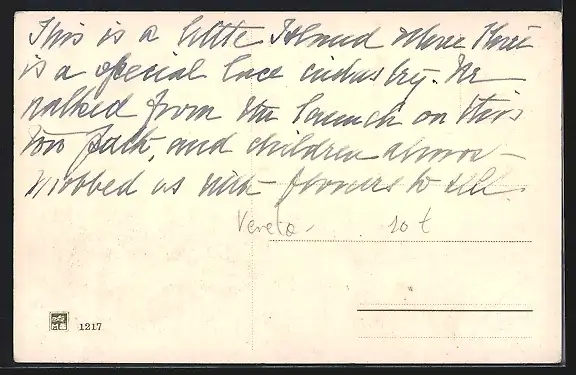 This is a little Island where there
is a special lace industry. We
walked from the launch on this
tow path, and children almost
mobbed us with flowers to sell.
10 t
1217